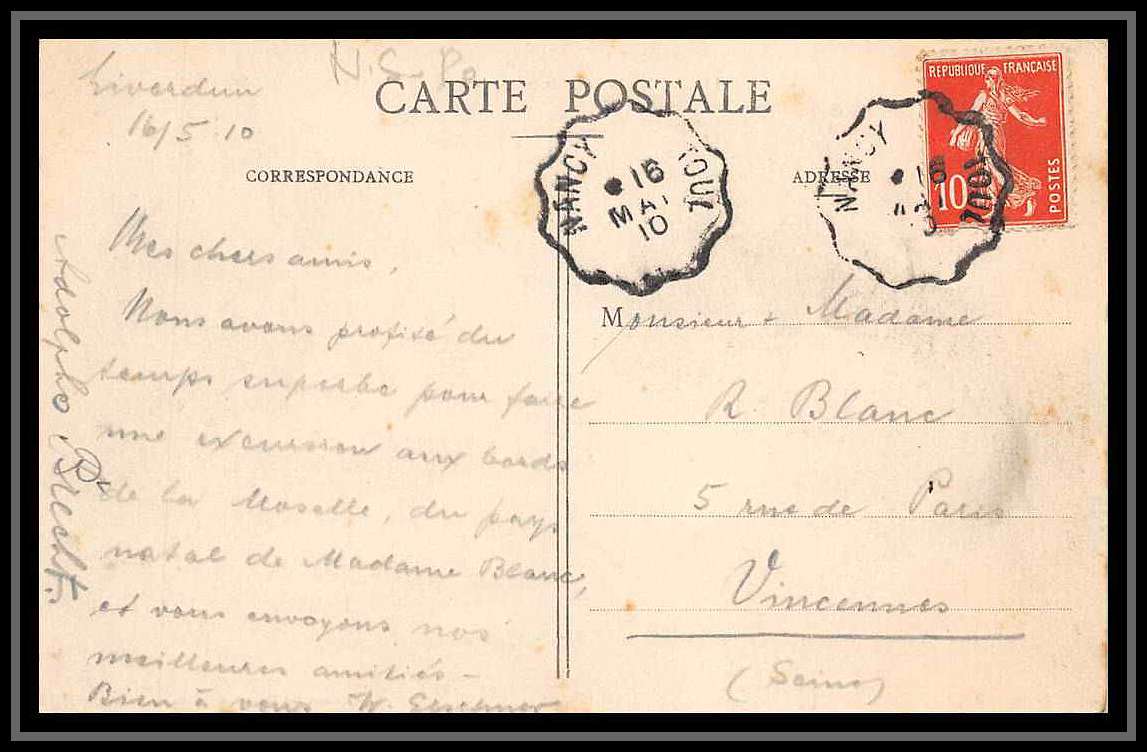 Liverdun
16/5 10
CARTE POSTALE
CORRESPONDANCE
ADRESSE
NANCY
TOUL
16
MAI
10
NANCY
TOUL
16
REPUBLIQUE FRANÇAISE
10
POSTES
Mes chers amis,
Nous avons profité du
temps superbe pour faire
une excursion aux bords
de la Moselle, du pays
natal de Madame Blanc,
et vous envoyons nos
meilleures amitiés -
Bien à vous W.
Adolphe
Monsieur + Madame
R. Blanc
5 rue de Paris
Vincennes
(Seine)